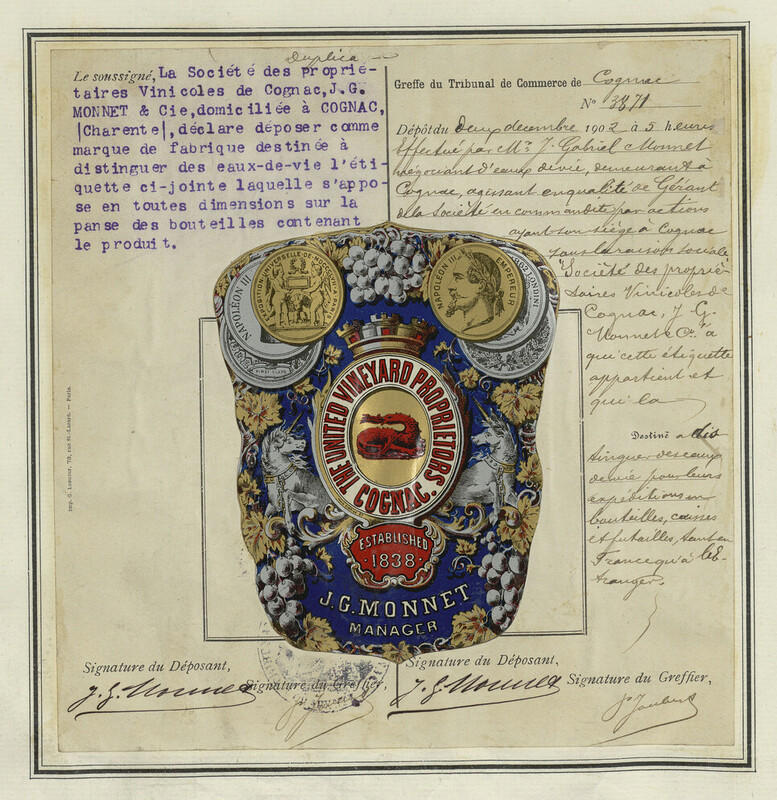 Duplica
Le soussigné, La Société des proprié-
taires Vinicoles de Cognac,J.G.
MONNET & Cie,domiciliée à COGNAC,
|Charente|,déclare déposer comme
marque de fabrique destinée à
distinguer des eaux-de-vie l'éti-
quette ci-jointe laquelle s'appo-
se en toutes dimensions sur la
panse des bouteilles contenant
le produit.
Greffe du Tribunal de Commerce de Cognac
N° 3871
Dépôt du deux decembre 1902 à 5 heures
Effectué par Mr J. Gabriel Monnet
négociant d'eaux de vie, demeurant à
Cognac, agissant en qualité de Gérant
de la Société en commandite par actions
ayant son siège à Cognac
sous la raison sociale
"Société des proprié-
taires Vinicoles de
Cognac, J. G.
Monnet & Co" à
qui cette étiquette
appartient et
qui la
Destiné a dis
tinguer des eaux
de vie pour leurs
expéditions en
bouteilles, caisses
et futailles, tant en
France qu'à l'é-
tranger.
NAPOLÉON III
EXPOSITION UNIVERSELLE DE MDCCCLXVII PARIS
NAPOLÉON III EMPEREUR
LONDINI
THE UNITED VINEYARD PROPRIETORS
COGNAC.
ESTABLISHED
·1838·
J.G.MONNET
MANAGER
Signature du Déposant,
J. G. Monnet
Signature du Greffier,
Signature du Déposant,
J. G. Monnet
Signature du Greffier,
Joubert